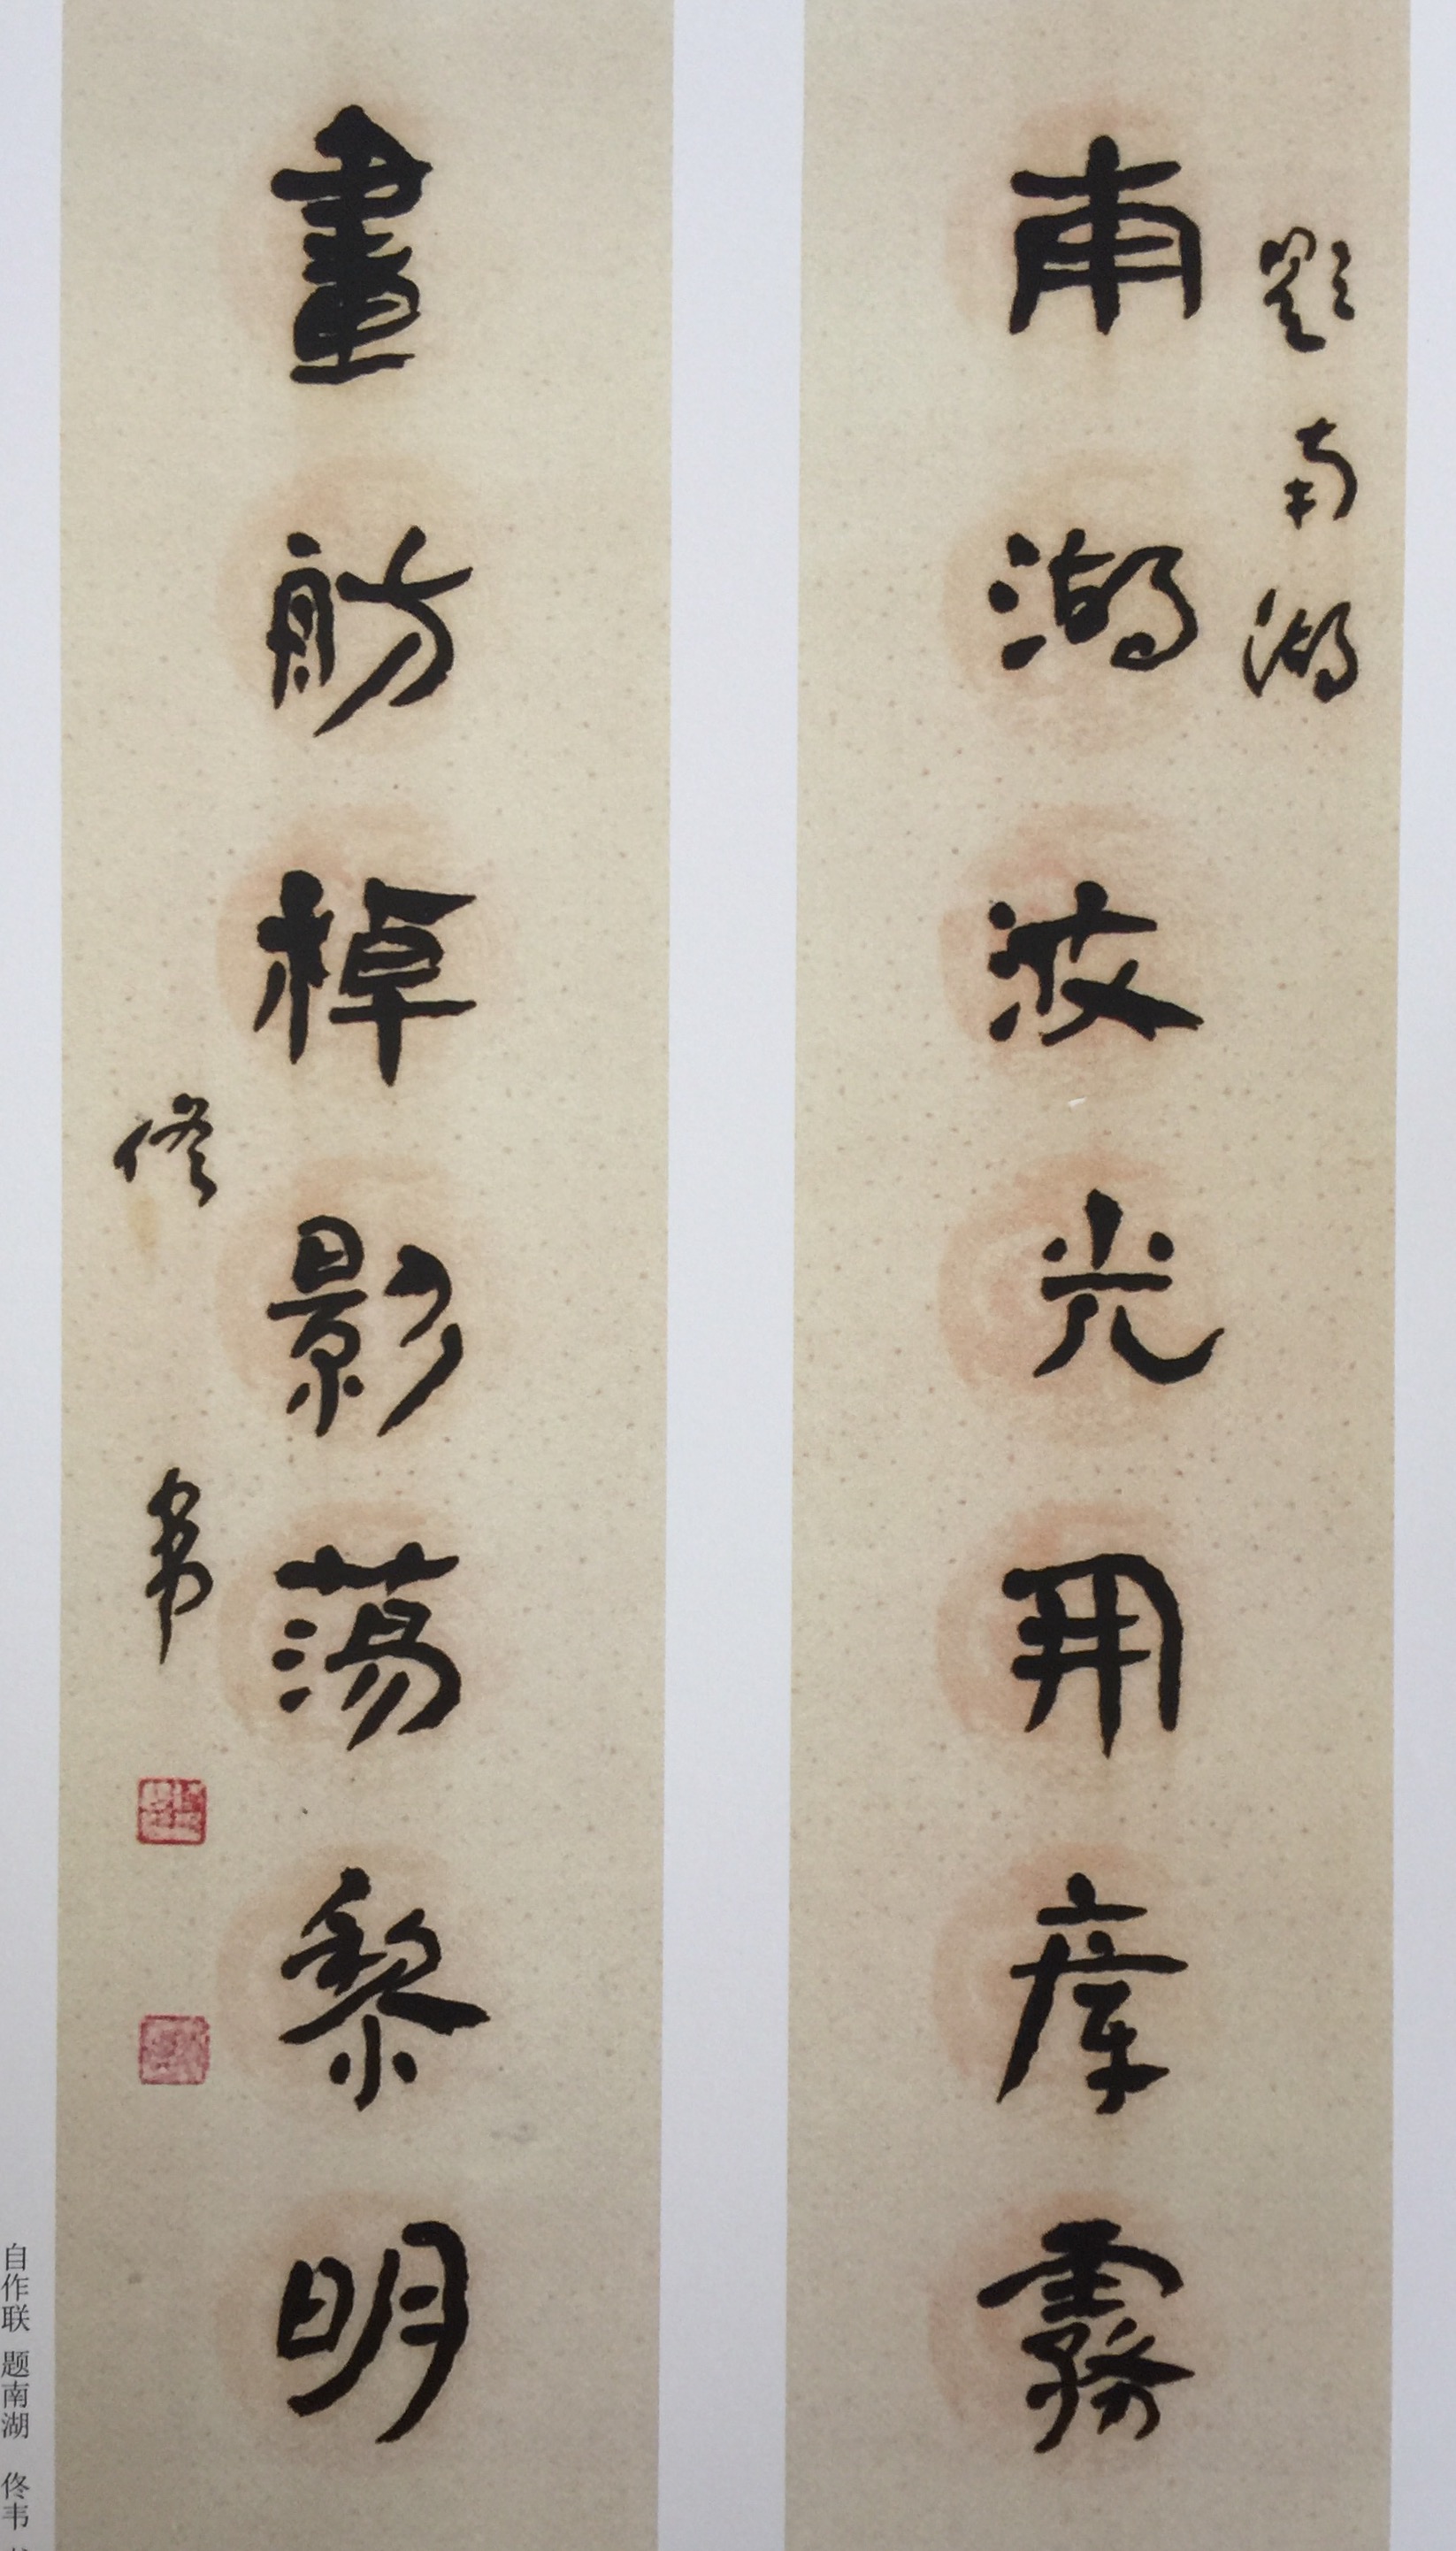 題南湖
南湖波光開霧
畫舫棹影蕩黎明
佟韋
自作联 题南湖 佟韦